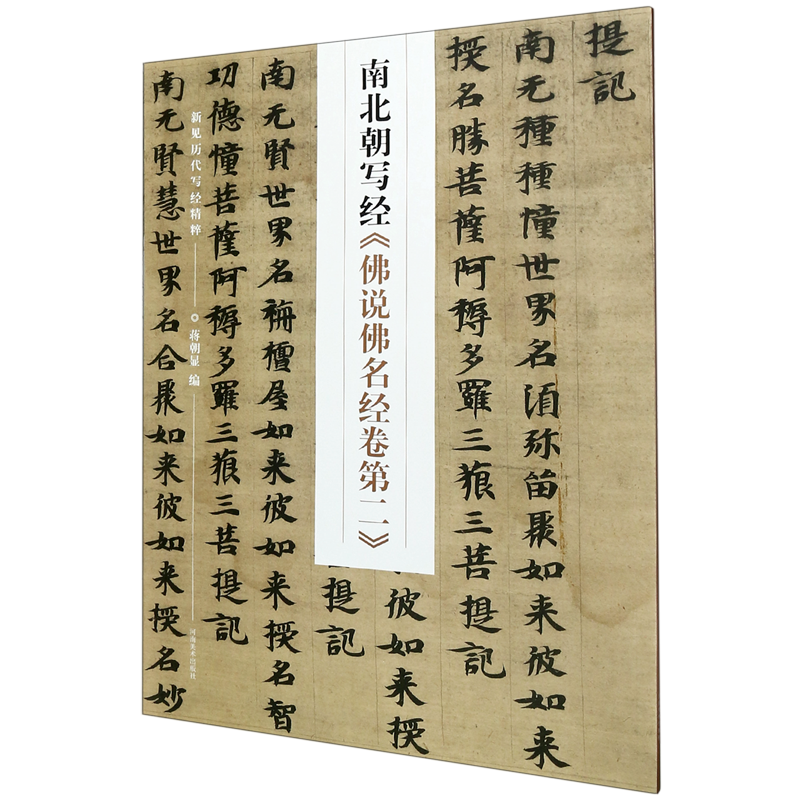 提記
南无種種憧世界名湏弥畄聚如来彼如来
授名勝菩薩阿耨多羅三䫀三菩提記
彼如来授
菩提記
南北朝写经《佛说佛名经卷第二》
南无賢世界名栴檀屋如来彼如来授名智
功德憧菩薩阿耨多羅三䫀三菩提記
南无賢慧世界名合聚如来彼如来授名妙
新见历代写经精粹
蒋朝显 编
河南美术出版社